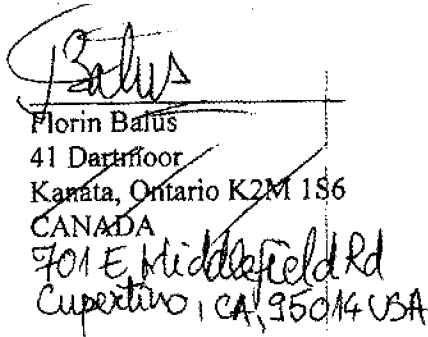 Balus
Florin Balus
41 Dartmoor
Kanata, Ontario K2M 1S6
CANADA
701 E Middlefield Rd
Cupertino, CA, 95014 USA